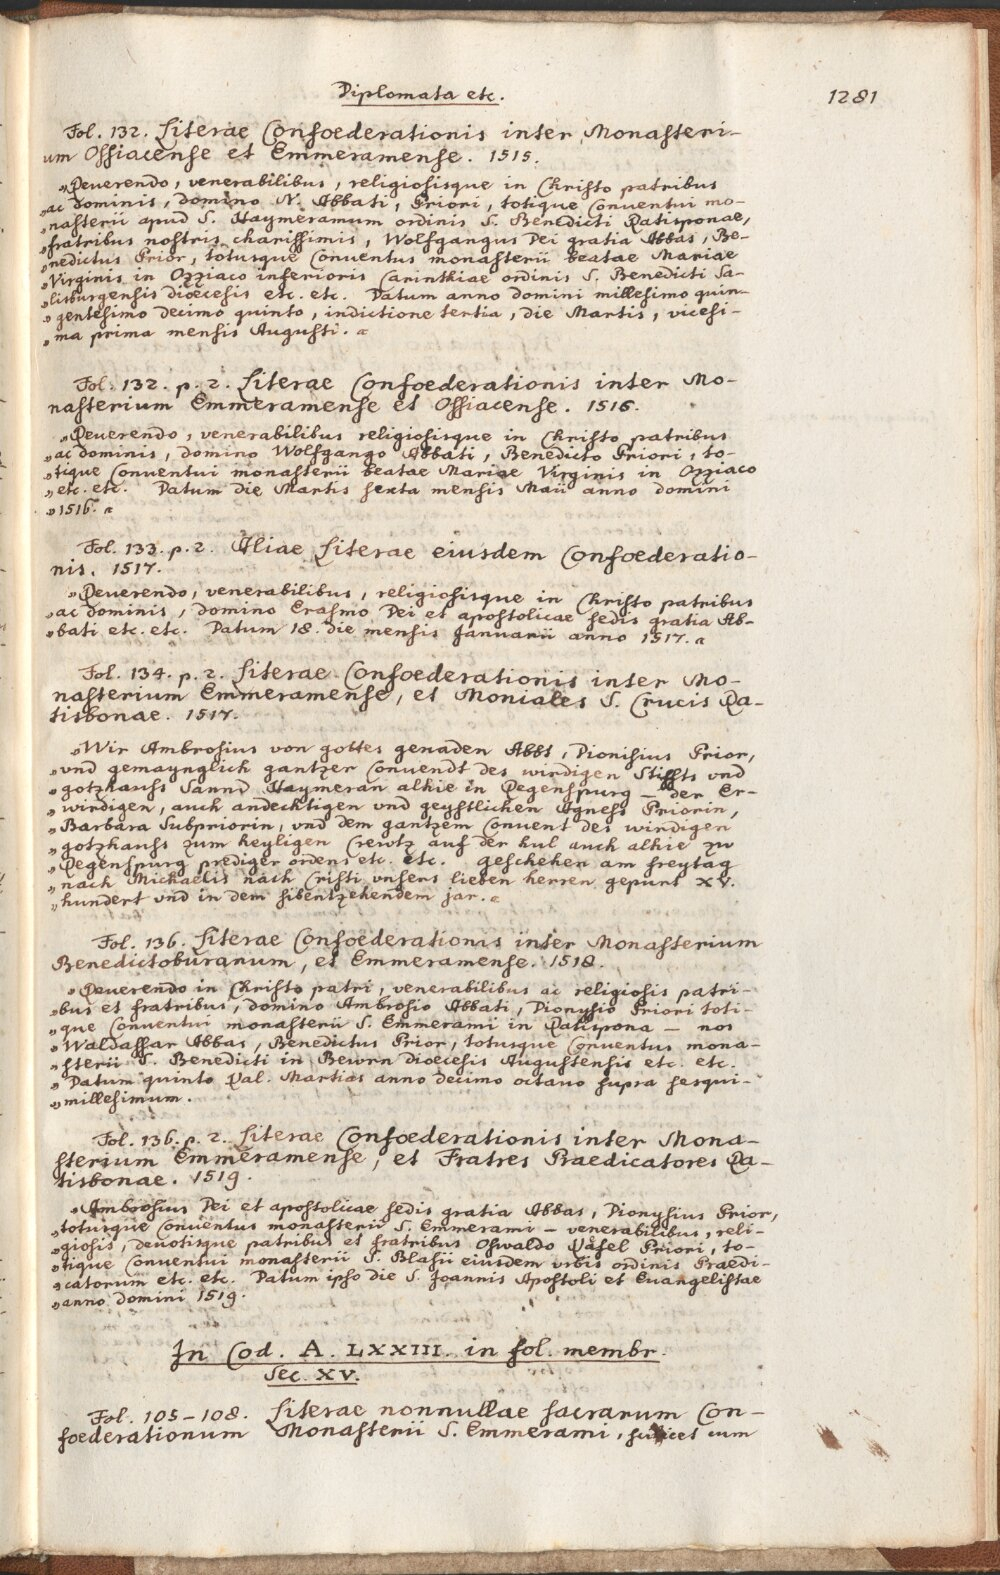 Diplomata etc.
1281
Fol. 132. Literae Confoederationis inter Monasteri-
um Ossiacense et Emmeramense. 1515.
„Reuerendo, venerabilibus, religiosisque in Christo patribus
„ac dominis, domino N. Abbati, Priori, totique Conuentui mo-
„nasterii apud S. Haymeramum ordinis S. Benedicti Ratisponae,
„fratribus nostris charissimis, Wolfgangus Dei gratia Abbas, Be-
„nedictus Prior, totusque Conuentus monasterii beatae Mariae
„Virginis in Ozziaco inferioris Carinthiae ordinis S. Benedicti Sa-
„lisburgensis dioecesis etc. etc. Datum anno domini millesimo quin-
„gentesimo decimo quinto, indictione tertia, die Martis, vicesi-
„ma prima mensis Augusti. “
Fol. 132. p. 2. Literae Confoederationis inter Mo-
nasterium Emmeramense et Ossiacense. 1516.
„Reuerendo, venerabilibus religiosisque in Christo patribus
„ac dominis, domino Wolfgango Abbati, Benedicto Priori, to-
„tique Conuentui monasterii beatae Mariae Virginis in Ozziaco
„etc. etc. Datum die Martis sexta mensis Maii anno domini
„1516. “
Fol. 133. p. 2. Aliae Literae eiusdem Confoederatio-
nis. 1517.
„Reuerendo, venerabilibus, religiosisque in Christo patribus
„ac dominis, domino Erasmo Dei et apostolicae sedis gratia Ab-
„bati etc. etc. Datum 18. die mensis Januarii anno 1517. “
Fol. 134. p. 2. Literae Confoederationis inter Mo-
nasterium Emmeramense, et Moniales S. Crucis Ra-
tisbonae. 1517.
„Wir Ambrosius von gottes genaden Abbt, Dionisius Prior,
„vnd gemaynglich gantzer Conuendt des wirdigen Stiffts vnd
„gotzhauss Sannd Haymeran alhie in Regenspurg — der Er-
„wirdigen, auch andechtigen vnd geystlichen Agness Priorin,
„Barbara Subpriorin, vnd dem gantzem Conuent des wirdigen
„gotzhauss zum heyligen Crewtz auf der hul auch alhie zw
„Regenspurg prediger ordens etc. etc. geschehen am freytag
„nach Michaelis nach Cristi vnsers lieben herren gepurt XV.
„hundert vnd in dem sibentzehendem jar. “
Fol. 136. Literae Confoederationis inter Monasterium
Benedictoburanum, et Emmeramense. 1518.
„Reuerendo in Christo patri, venerabilibus ac religiosis patri-
„bus et fratribus, domino Ambrosio Abbati, Dionysio Priori toti-
„que Conuentui monasterii S. Emmerami in Ratispona — nos
„Waldassar Abbas, Benedictus Prior, totusque Conuentus mona-
„sterii S. Benedicti in Bewrn dioecesis Augustensis etc. etc.
„Datum quinto Kal. Martias anno decimo octauo supra sesqui-
„millesimum.
Fol. 136. p. 2. Literae Confoederationis inter Mona-
sterium Emmeramense, et Fratres Praedicatores Ra-
tisbonae. 1519.
„Ambrosius Dei et apostolicae sedis gratia Abbas, Dionysius Prior,
„totusque Conuentus monasterii S. Emmerami — venerabilibus, reli-
„giosis, deuotisque patribus et fratribus Oswaldo Priori, to-
„tique Conuentui monasterii S. Blasii eiusdem vrbis ordinis Praedi-
„catorum etc. etc. Datum ipso die S. Joannis Apostoli et Euangelistae
„anno domini 1519.
In Cod. A. LXXIII. in fol. membr.
Sec. XV.
Fol. 105-108. Literae nonnullae sacrarum Con-
foederationum Monasterii S. Emmerami, scilicet cum